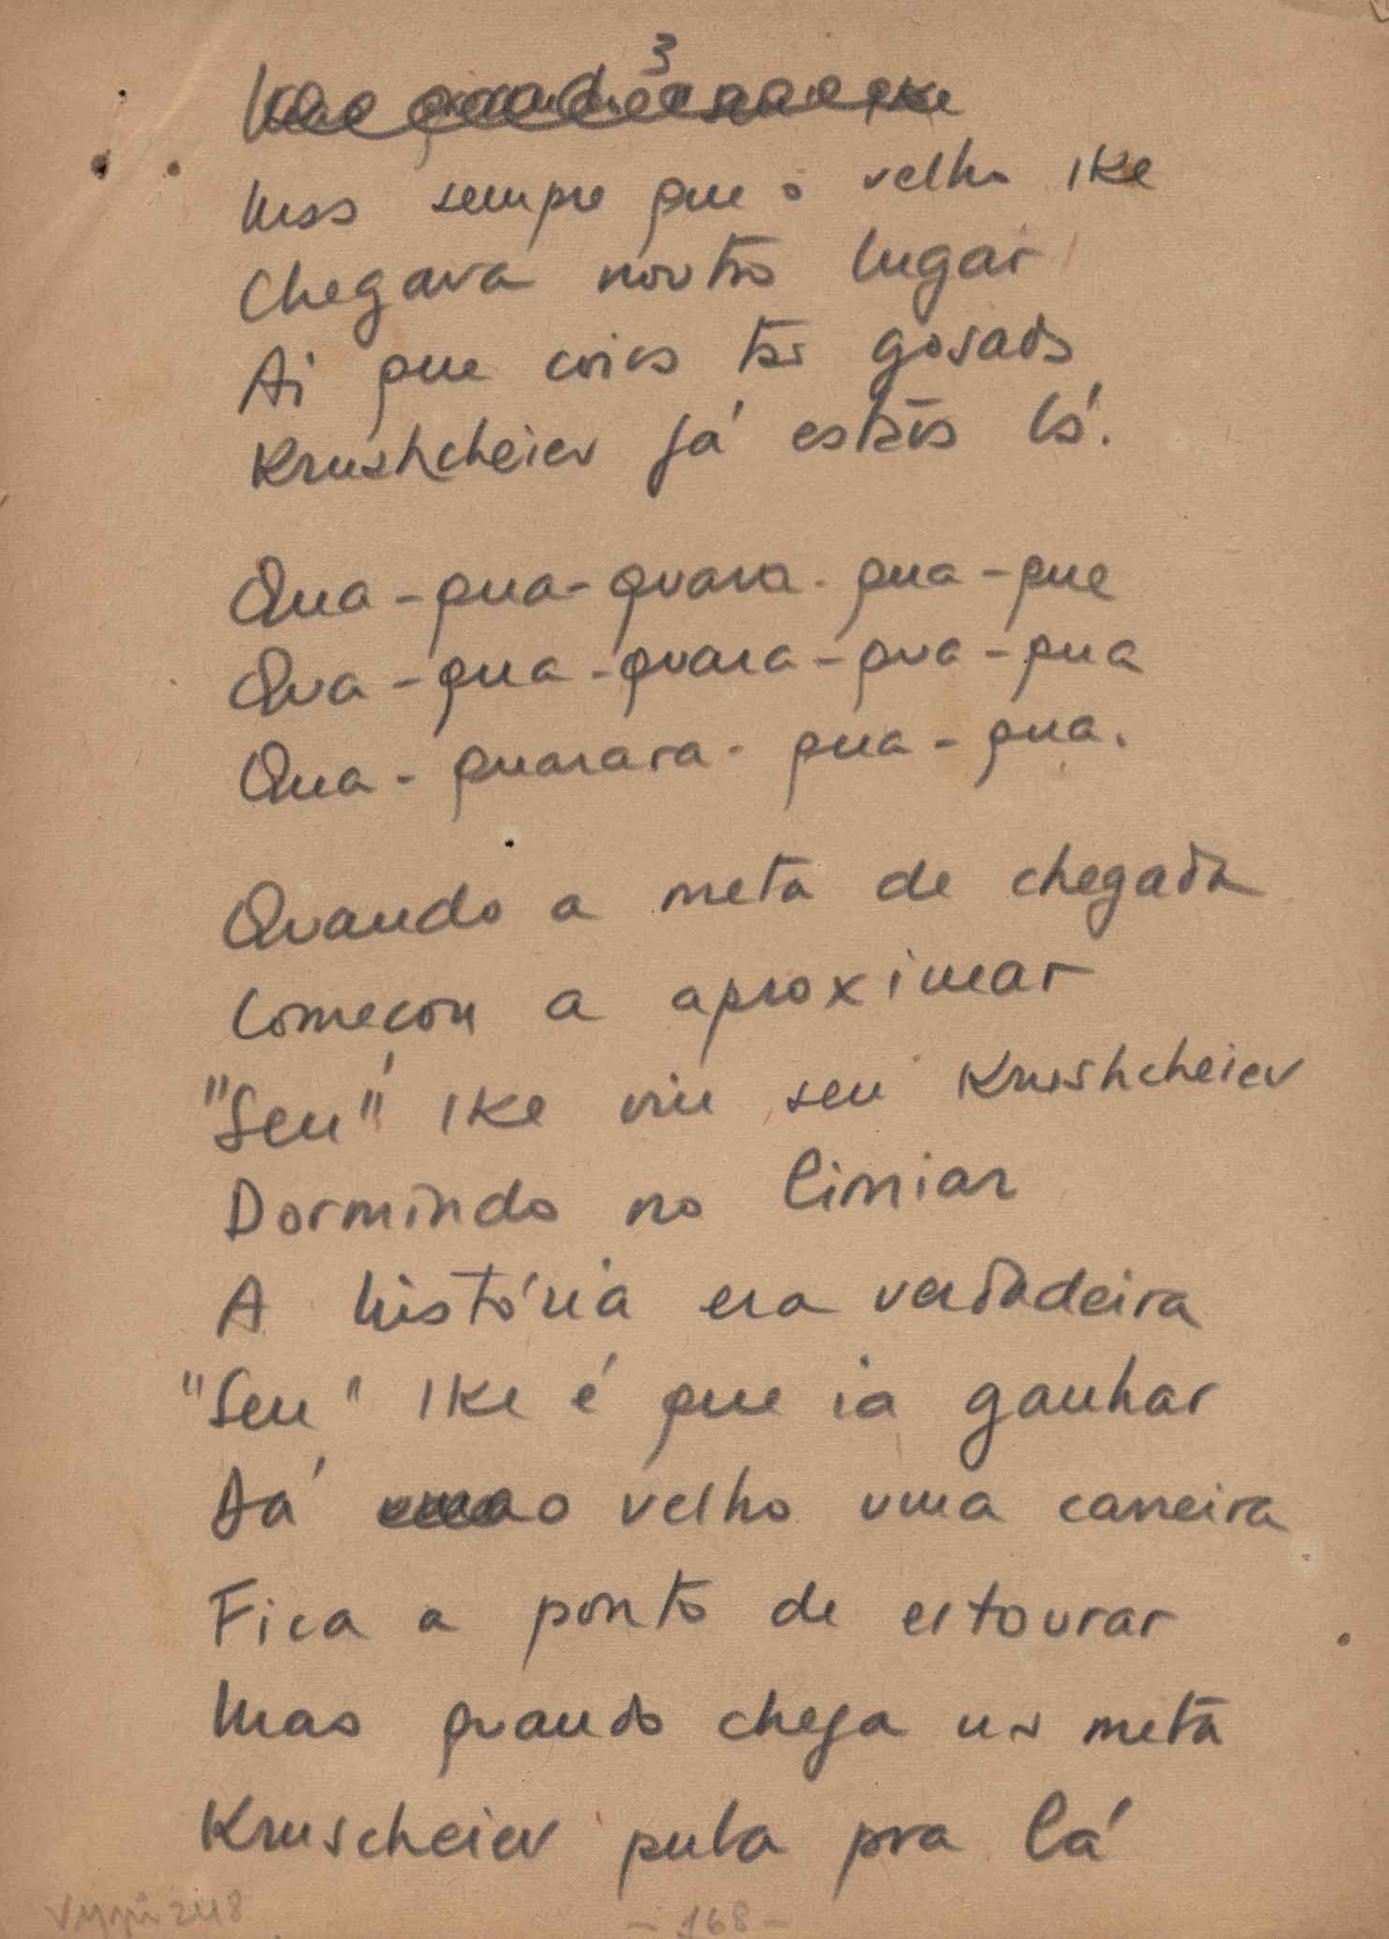 3
Mas sempre que o velho Ike
Chegava noutro lugar
Ai que coisa tão gosada
Krushcheiev já estava lá.
Qua-qua-quara-qua-que
Qua-qua-quara-qua-qua
Qua-quarara-qua-qua.
Quando a meta de chegada
Começou a aproximar
"Seu" Ike viu seu Krushcheiev
Dormindo no limiar
A história era verdadeira
"Seu" Ike é que ia ganhar
Dá o velho uma carreira
Fica a ponto de estourar
Mas quando chega na meta
Kruscheiev pula pra lá
- 168 -